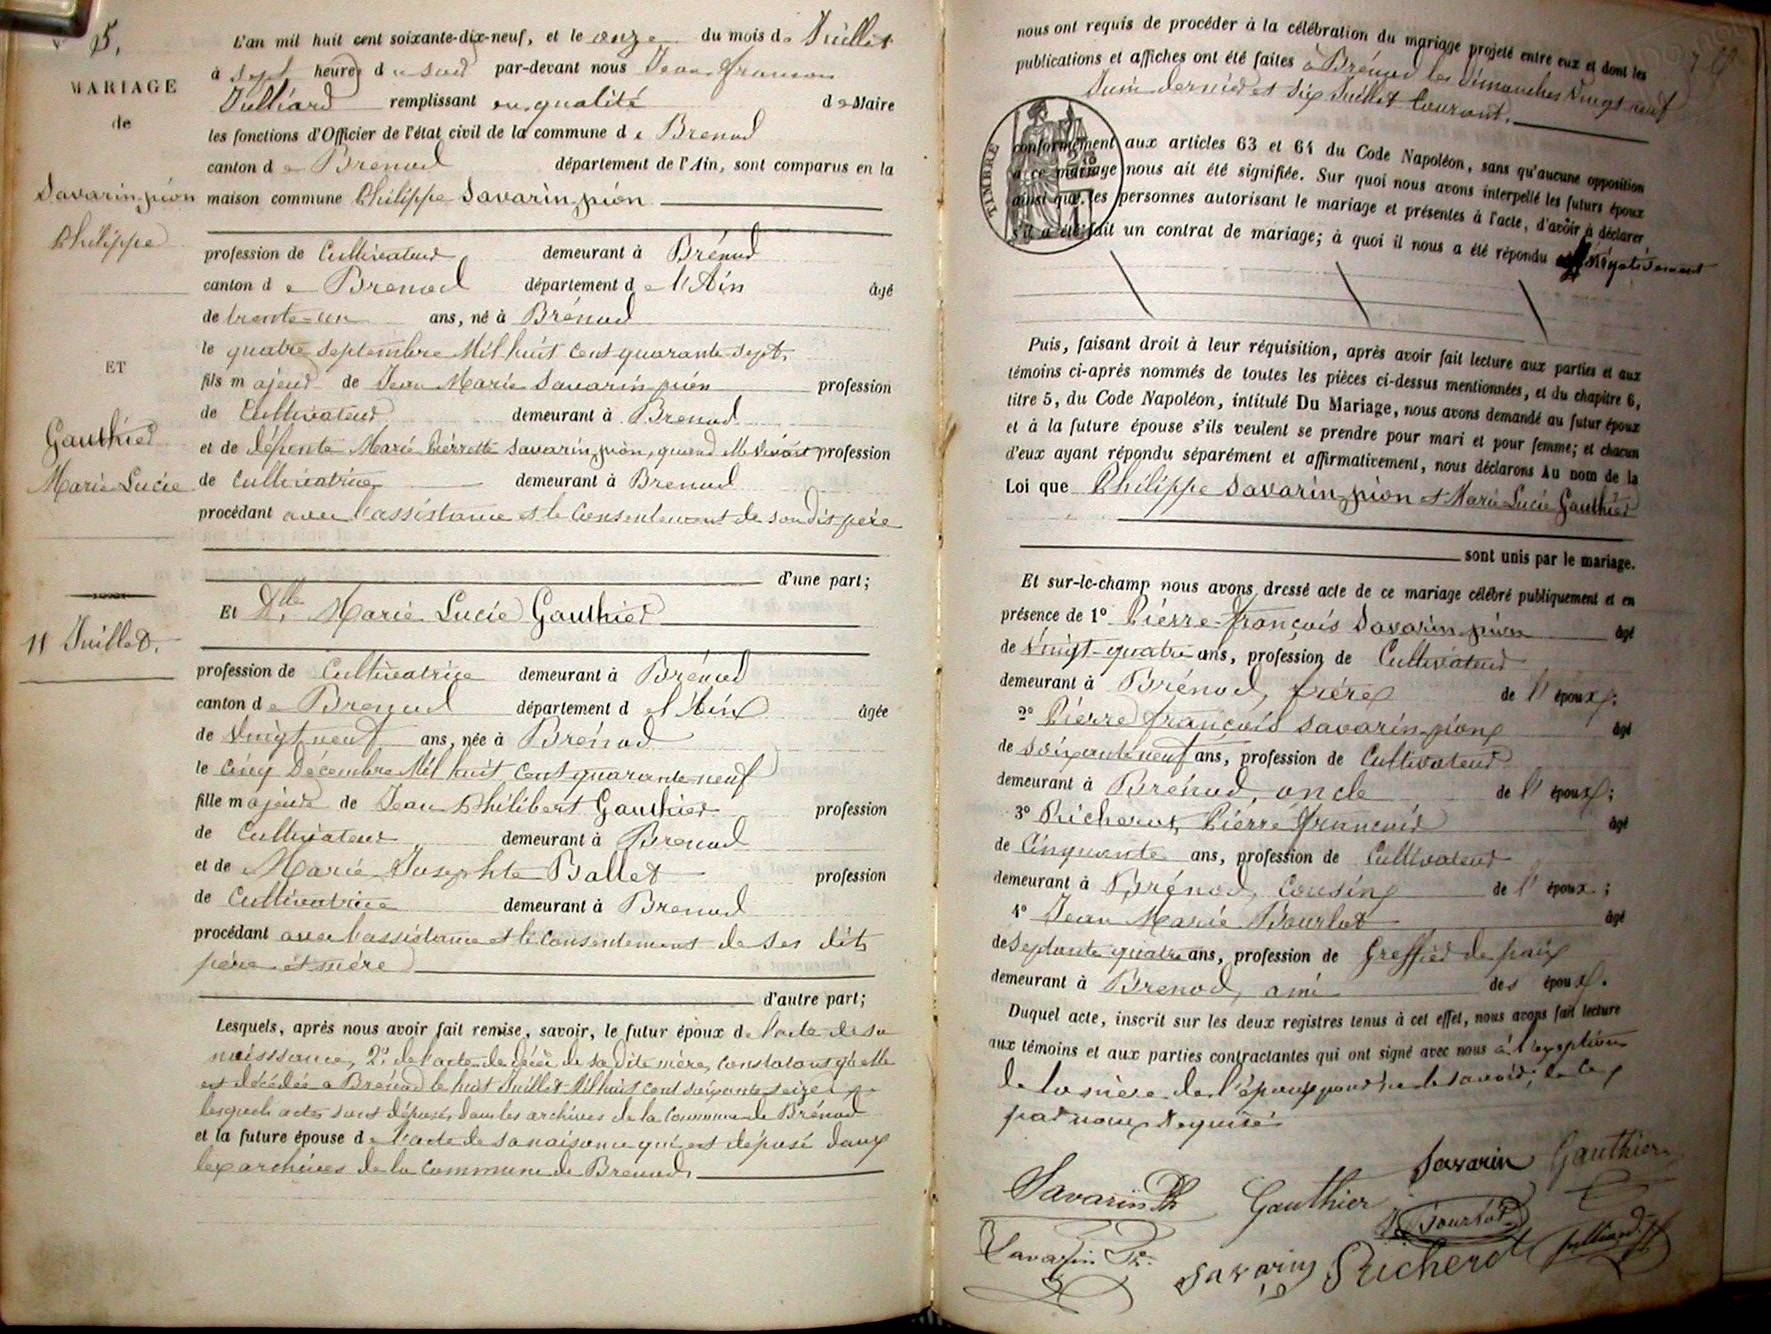 5,
MARIAGE
de
Savarin-pion
Philippe
ET
Gauthier
Marie Lucie
11 Juillet.
L'an mil huit cent soixante-dix-neuf, et le onze du mois de Juillet
à sept heures du soir par-devant nous Jean François
Julliard remplissant en qualité de Maire
les fonctions d'Officier de l'état civil de la commune de Brenod
canton de Brenod département de l'Ain, sont comparus en la
maison commune Philippe Savarin-pion
profession de Cultivateur demeurant à Brénod
canton de Brenod département de l'Ain âgé
de trente-un ans, né à Brénod
le quatre septembre Mil huit cent quarante sept,
fils majeur de Jean Marie Savarin pion profession
de Cultivateur demeurant à Brenod
et de défunte Marie Pierrette Savarin-pion, quand elle vivait profession
de Cultivatrice demeurant à Brenod
procédant avec l'assistance et le Consentement de son dit père
d'une part;
Et Dlle Marie Lucie Gauthier
profession de Cultivatrice demeurant à Brénod
canton de Brenod département de l'Ain âgée
de Vingt neuf ans, née à Brénod
le cinq Décembre Mil huit cent quarante neuf
fille majeure de Jean Philibert Gauthier profession
de Cultivateur demeurant à Brenod
et de Marie Josephte Ballet profession
de Cultivatrice demeurant à Brenod
procédant avec l'assistance et le Consentement de ses dits
père et mère
d'autre part;
Lesquels, après nous avoir fait remise, savoir, le futur époux de l'acte de sa
naissance, 2° de l'acte de décès de sa dite mère, constatant qu'elle
est décédée à Brénod le huit Juillet Mil huit cent soixante seize
lesquels actes sont déposés dans les archives de la Commune de Brénod
et la future épouse de l'acte de sa naissance qui est déposé dans
les archives de la commune de Brenod,
nous ont requis de procéder à la célébration du mariage projeté entre eux et dont les
publications et affiches ont été faites à Brénod les Dimanches Vingt neuf
Juin dernier et six Juillet Courant.
TIMBRE
conformément aux articles 63 et 64 du Code Napoléon, sans qu'aucune opposition
à ce mariage nous ait été signifiée. Sur quoi nous avons interpellé les futurs époux
ainsi que les personnes autorisant le mariage et présentes à l'acte, d'avoir à déclarer
s'il a été fait un contrat de mariage; à quoi il nous a été répondu négativement
Puis, faisant droit à leur réquisition, après avoir fait lecture aux parties et aux
témoins ci-après nommés de toutes les pièces ci-dessus mentionnées, et du chapitre 6,
titre 5, du Code Napoléon, intitulé Du Mariage, nous avons demandé au futur époux
et à la future épouse s'ils veulent se prendre pour mari et pour femme; et chacun
d'eux ayant répondu séparément et affirmativement, nous déclarons Au nom de la
Loi que Philippe Savarin-pion et Marie Lucie Gauthier
sont unis par le mariage.
Et sur-le-champ nous avons dressé acte de ce mariage célébré publiquement et en
présence de 1° Pierre-françois Savarin-pion âgé
de Vingt-quatre ans, profession de Cultivateur
demeurant à Brénod, frère de l'époux;
2° Pierre françois Savarin-pion âgé
de soixante neuf ans, profession de Cultivateur
demeurant à Brénod, oncle de l'époux;
3° Richerot, Pierre françois âgé
de Cinquante ans, profession de Cultivateur
demeurant à Brénod, Cousin de l'époux;
4° Jean Marie Bourlot âgé
de Septante quatre ans, profession de Greffier de paix
demeurant à Brenod, ami des époux.
Duquel acte, inscrit sur les deux registres tenus à cet effet, nous avons fait lecture
aux témoins et aux parties contractantes qui ont signé avec nous à l'exception
de la mère de l'épouse pour ne le savoir, de ce
par nous requise
Savarin Gauthier
Savarin Ph Gauthier
Bourlot
Savarin Savarin Richerot Julliard